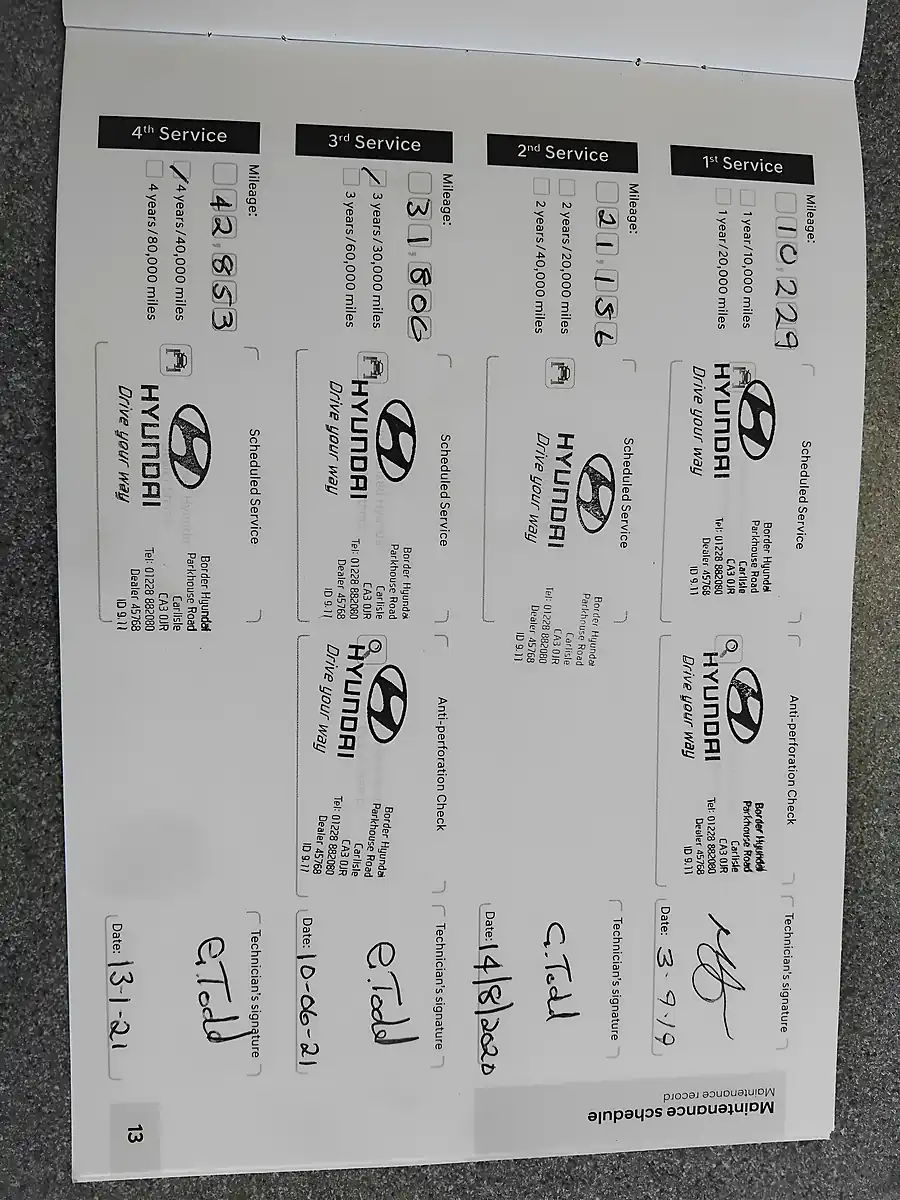 Maintenance schedule
Maintenance record
1st Service
Mileage:
10,229
1 year/10,000 miles
1 year/20,000 miles
Scheduled Service
HYUNDAI
Drive your way
Border Hyundai
Parkhouse Road
Carlisle
CA3 0JR
Tel: 01228 882080
Dealer 45768
ID 9.11
Anti-perforation Check
HYUNDAI
Drive your way
Border Hyundai
Parkhouse Road
Carlisle
CA3 0JR
Tel: 01228 882080
Dealer 45768
ID 9.11
Technician's signature
Date: 3.9.19
2nd Service
Mileage:
21,156
2 years/20,000 miles
2 years/40,000 miles
Scheduled Service
HYUNDAI
Drive your way
Border Hyundai
Parkhouse Road
Carlisle
CA3 0JR
Tel: 01228 882080
Dealer 45768
ID 9.11
Technician's signature
G.Todd
Date: 14/8/2020
3rd Service
Mileage:
31,806
3 years/30,000 miles
3 years/60,000 miles
Scheduled Service
HYUNDAI
Drive your way
Border Hyundai
Parkhouse Road
Carlisle
CA3 0JR
Tel: 01228 882080
Dealer 45768
ID 9.11
Anti-perforation Check
HYUNDAI
Drive your way
Border Hyundai
Parkhouse Road
Carlisle
CA3 0JR
Tel: 01228 882080
Dealer 45768
ID 9.11
Technician's signature
G.Todd
Date: 10-06-21
4th Service
Mileage:
42,853
4 years/40,000 miles
4 years/80,000 miles
Scheduled Service
HYUNDAI
Drive your way
Border Hyundai
Parkhouse Road
Carlisle
CA3 0JR
Tel: 01228 882080
Dealer 45768
ID 9.11
Technician's signature
G.Todd
Date: 13-1-21
13